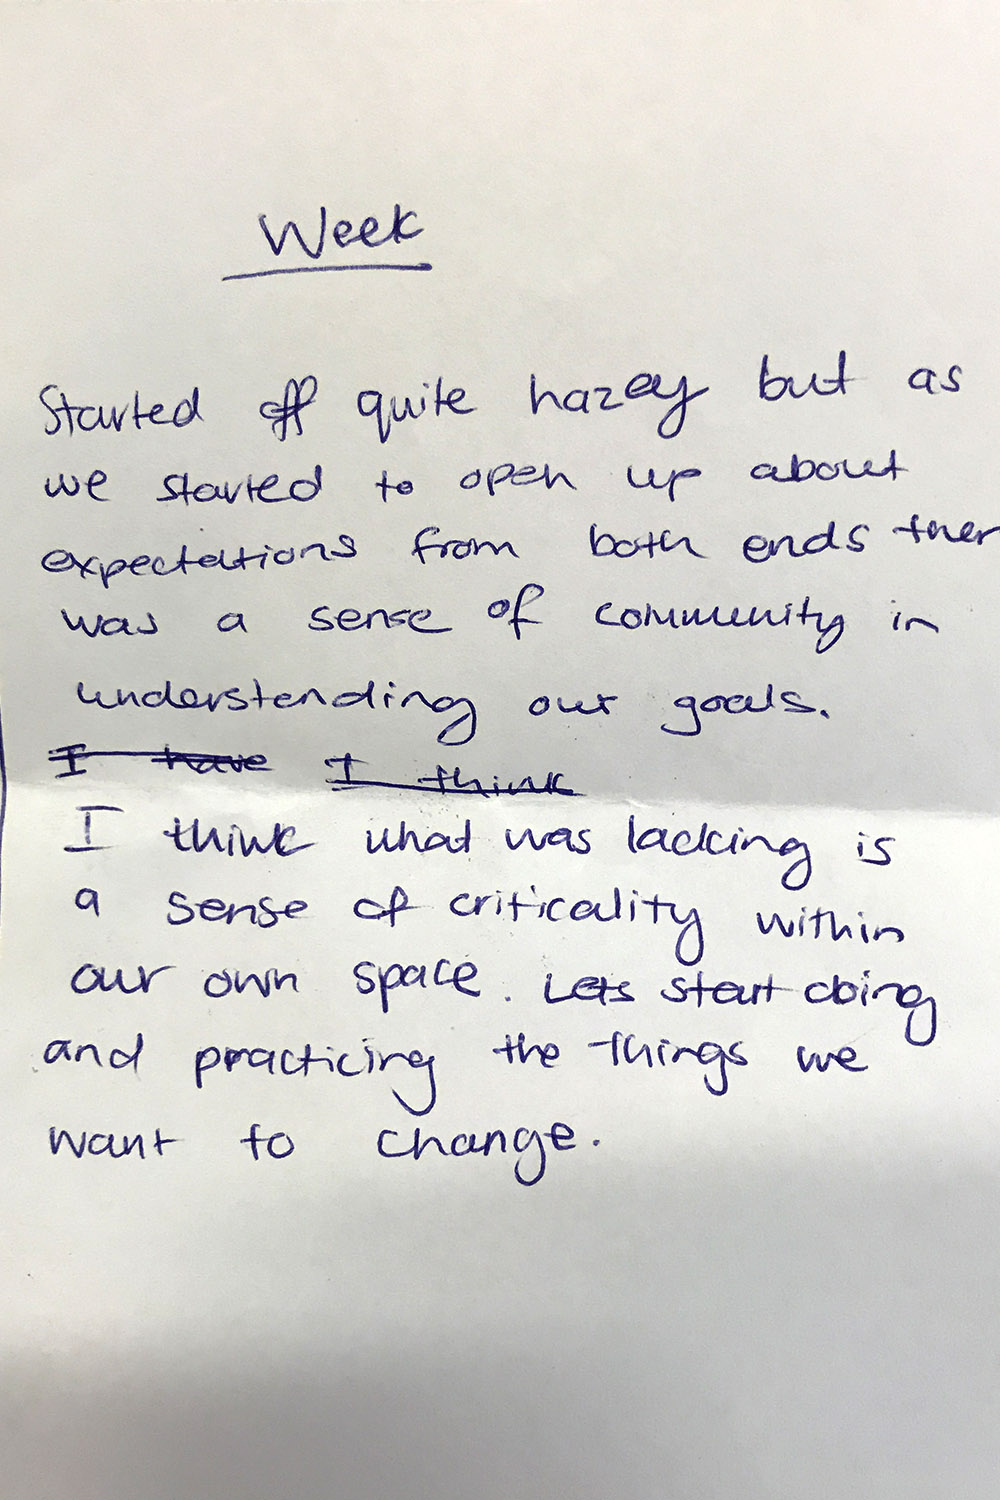 Week
Started off quite hazey but as
we started to open up about
expectations from both ends ther
was a sense of community in
understanding our goals.
I have I think
I think what was lacking is
a sense of criticality within
our own space. Lets start doing
and practicing the things we
want to change.